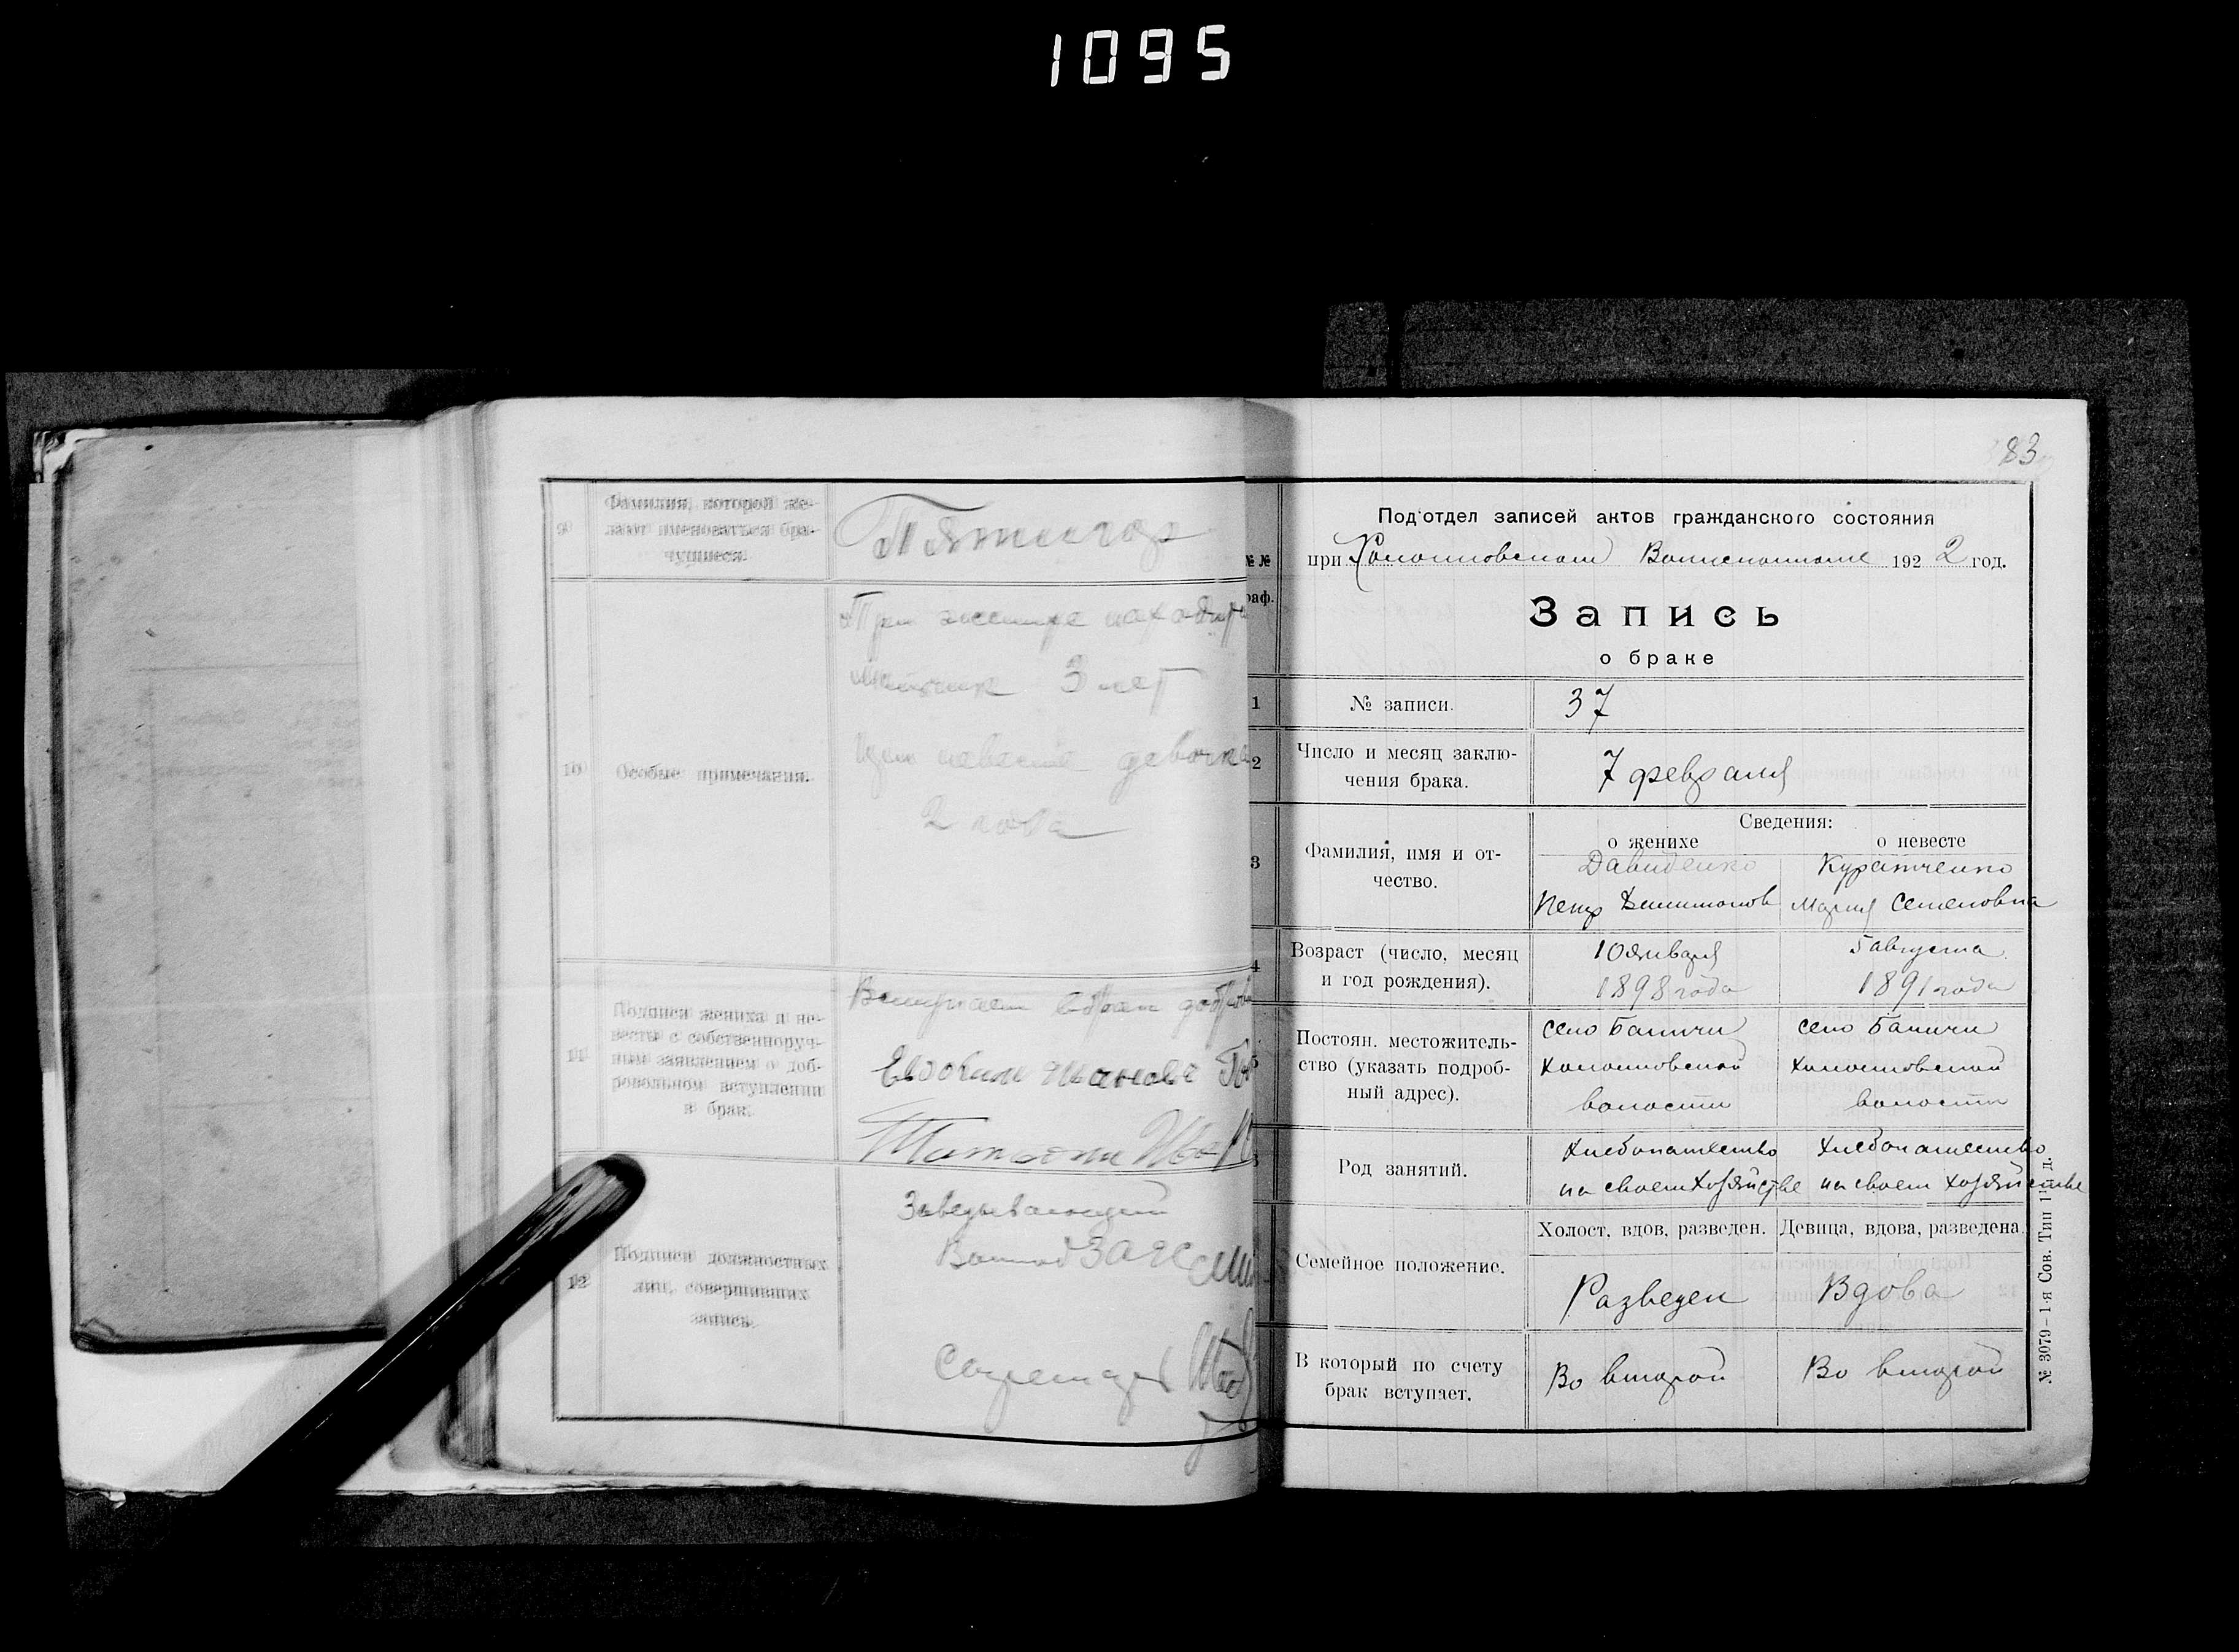 1095
9
Фамилия, которой же-
лают именоваться бра-
чущиеся.
Пятигор
10
Особые примечания.
При женихе находится
мальчик 3 лет
При невесте девочка
2 года
11
Подписи жениха и не-
весты с собственноруч-
ным заявлением о доб-
ровольном вступлении
в брак.
Вступаем в брак добров
Иванова
Татьяна
12
Подписи должностных
лиц, совершивших
запись.
Заведывающий
ЗАГС
Секретарь
83
Под'отдел записей актов гражданского состояния
№№
раф.
при Холопковском Волисполкоме 1922 год.
Запись
о браке
1
№ записи.
37
2
Число и месяц заклю-
чения брака.
7 февраля
Сведения:
о женихе
о невесте
3
Фамилия, имя и от-
чество.
Давиденко
Петр
Куратченко
Мария Семеновна
4
Возраст (число, месяц
и год рождения).
10 января
1898 года
5 августа
1891 года
5
Постоян. местожитель-
ство (указать подроб-
ный адрес).
село Баничи
Холопковской
волости
село Баничи
Холопковской
волости
Род занятий.
Хлебопашество
на своем хозяйстве
Хлебопашество
на своем хозяйстве
Семейное положение.
Холост, вдов, разведен.
Девица, вдова, разведена
Разведен
Вдова
В который по счету
брак вступает.
Во второй
Во второй
№ 3079–1-я Сов. Тип